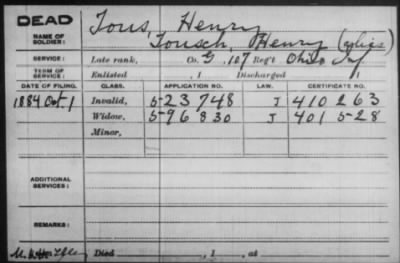 DEAD
Tous, Henry
NAME OF SOLDIER:
Tousch, Henry (alias)
SERVICE: Late rank, Co. G, 107 Reg't Ohio Inf
TERM OF SERVICE: Enlisted , 1 Discharged , 1
DATE OF FILING. CLASS. APPLICATION NO. LAW. CERTIFICATE NO.
1884 Oct. 1 Invalid, 523748 J 410263
Widow, 596830 J 401528
Minor,
ADDITIONAL SERVICES:
REMARKS:
Died , 1 , at